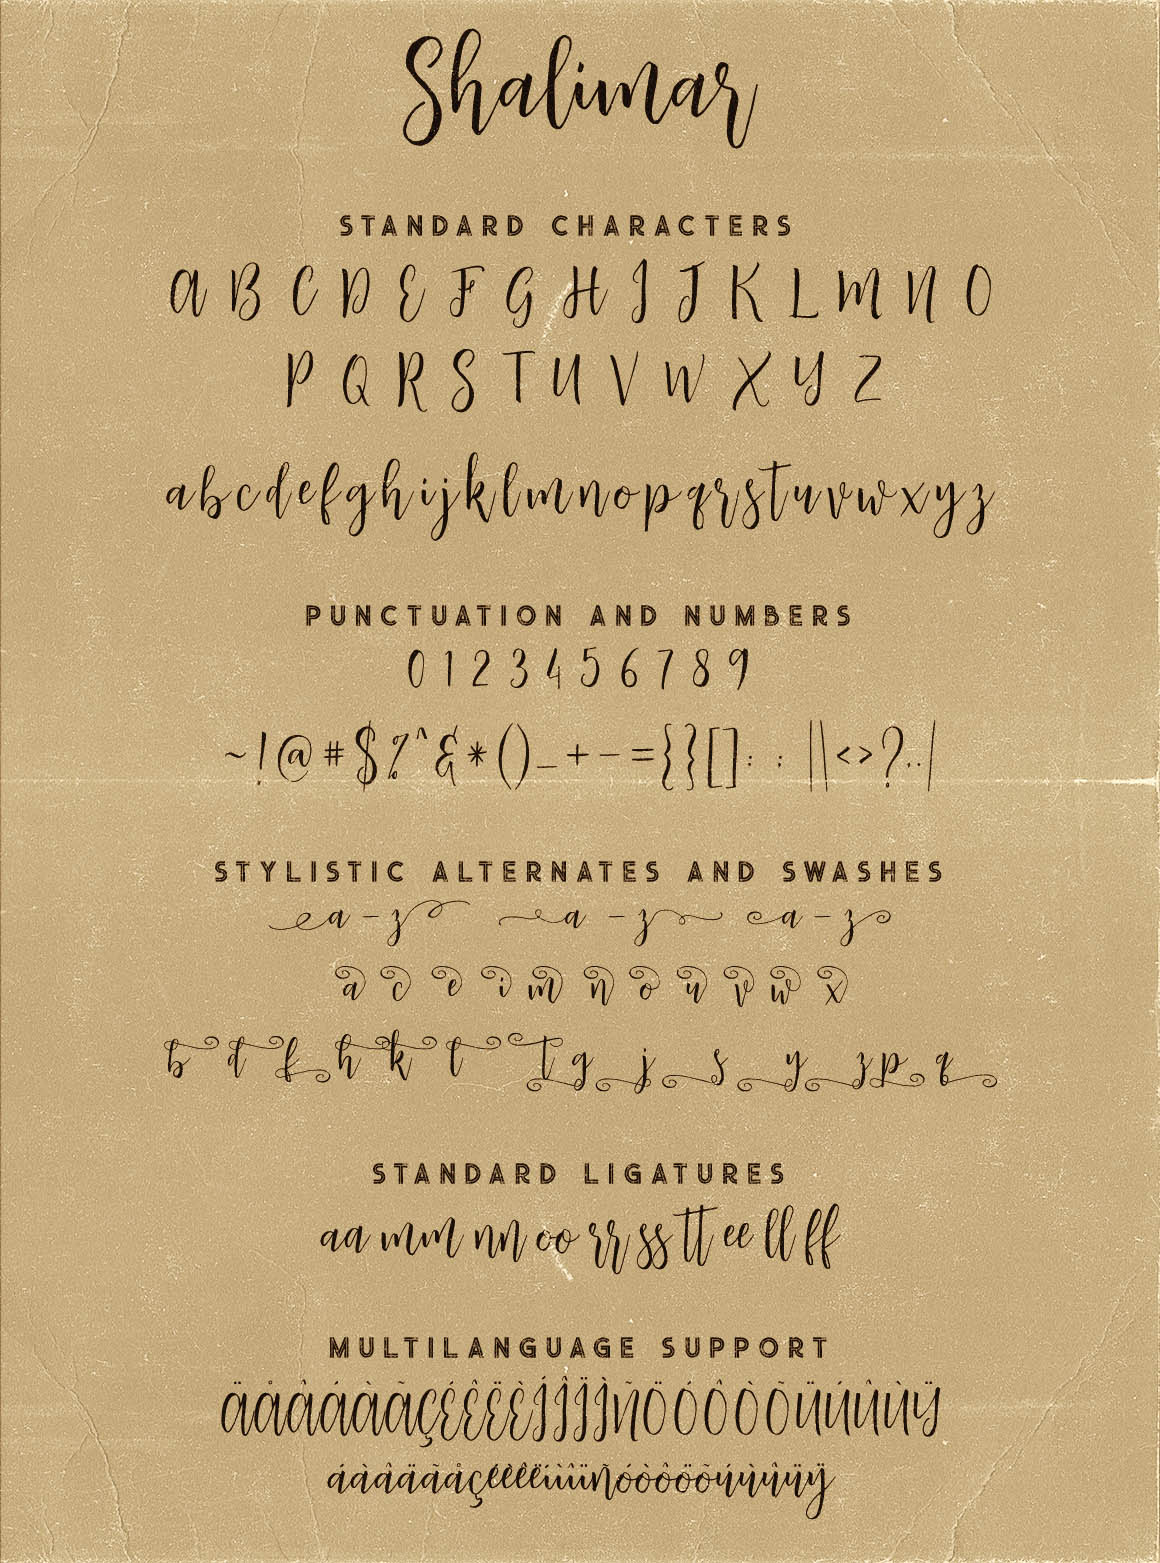 Shalimar
STANDARD CHARACTERS
A B C D E F G H I J K L M N O
P Q R S T U V W X Y Z
abcdefghijklmnopqrstuvwxyz
PUNCTUATION AND NUMBERS
0 1 2 3 4 5 6 7 8 9
~!@#$%^&*()_+-={}[]:;||<>?..|
STYLISTIC ALTERNATES AND SWASHES
a-z a-z a-z
a c e i m n o u v w x
b d f h k l t g j s y z p q
STANDARD LIGATURES
aa mm nn oo rr ss tt ee ll ff
MULTILANGUAGE SUPPORT
ÄÅÂÁÀÃÇÉÊËÈÍÎÏÌÑÖÓÔÒÕÜÚÛÙŸ
áàâäãåçéèêëíìîïñóòôöõúùûüÿ